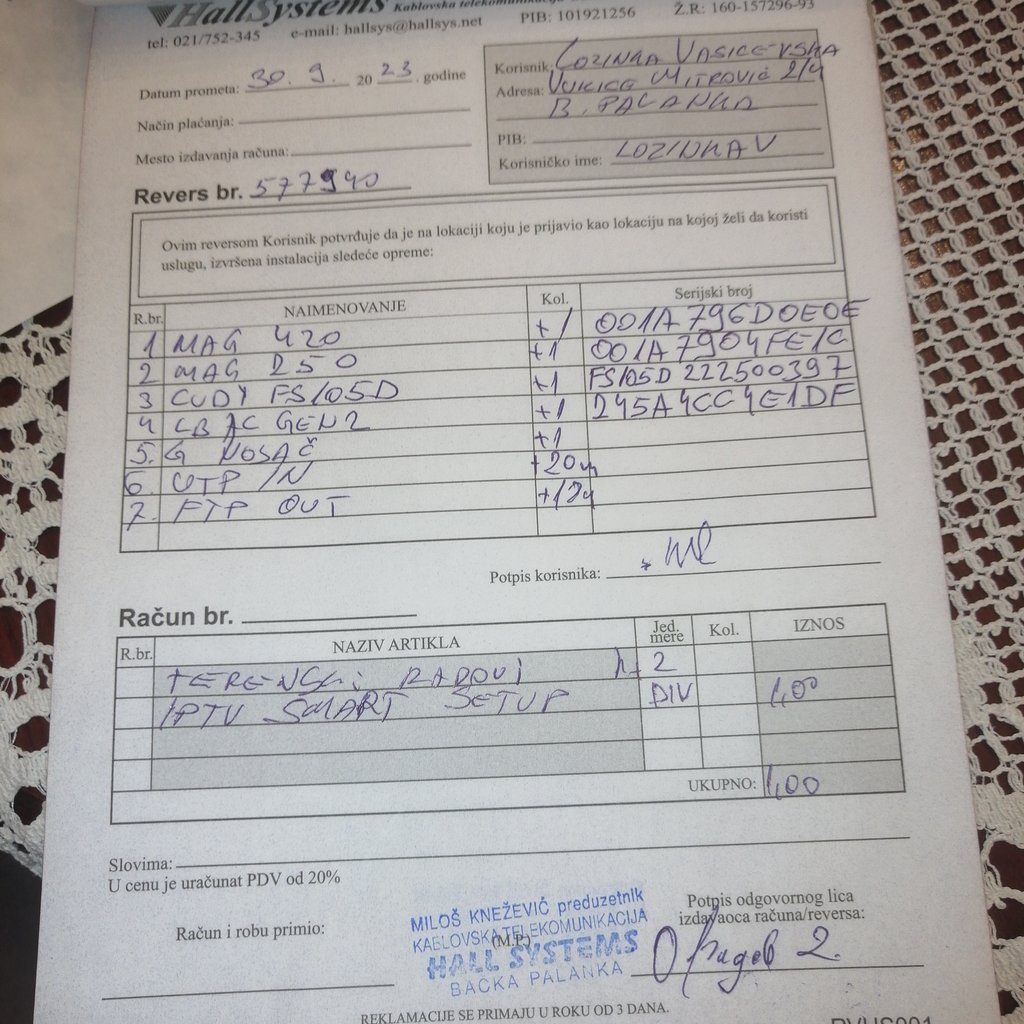 HallSystems Kablovska
tel: 021/752-345 e-mail: hallsys@hallsys.net PIB: 101921256 Ž.R: 160-157296-93
Datum prometa: 30. 9. 2023. godine
Način plaćanja:
Mesto izdavanja računa:
Korisnik: LOZINKA VASICEVSKA
Adresa: VUKICE MITROVIĆ 2/4
B. PALANKA
PIB:
Korisničko ime: LOZINKAV
Revers br. 577940
Ovim reversom Korisnik potvrđuje da je na lokaciji koju je prijavio kao lokaciju na kojoj želi da koristi
uslugu, izvršena instalacija sledeće opreme:
R.br. NAIMENOVANJE Kol. Serijski broj
1 MAG 420 +1 001A796D0E0E
2 MAG 250 +1 001A7904FE1C
3 CUDY FS105D +1 FS105D 222500397
4 LB AC GEN2 +1 245A4CC4E1DF
5. G NOSAČ +1
6. UTP IN +20m
7. FTP OUT
Potpis korisnika:
Račun br.
R.br. NAZIV ARTIKLA Jed. mere Kol. IZNOS
TERENSKI RADOVI 2
IPTV SMART SETUP DIV 1,00
UKUPNO: 1,00
Slovima:
U cenu je uračunat PDV od 20%
Račun i robu primio:
MILOŠ KNEŽEVIĆ preduzetnik
KABLOVSKA TELEKOMUNIKACIJA
(M.P.)
HALL SYSTEMS
BAČKA PALANKA
Potpis odgovornog lica
izdavaoca računa/reversa:
REKLAMACIJE SE PRIMAJU U ROKU OD 3 DANA.